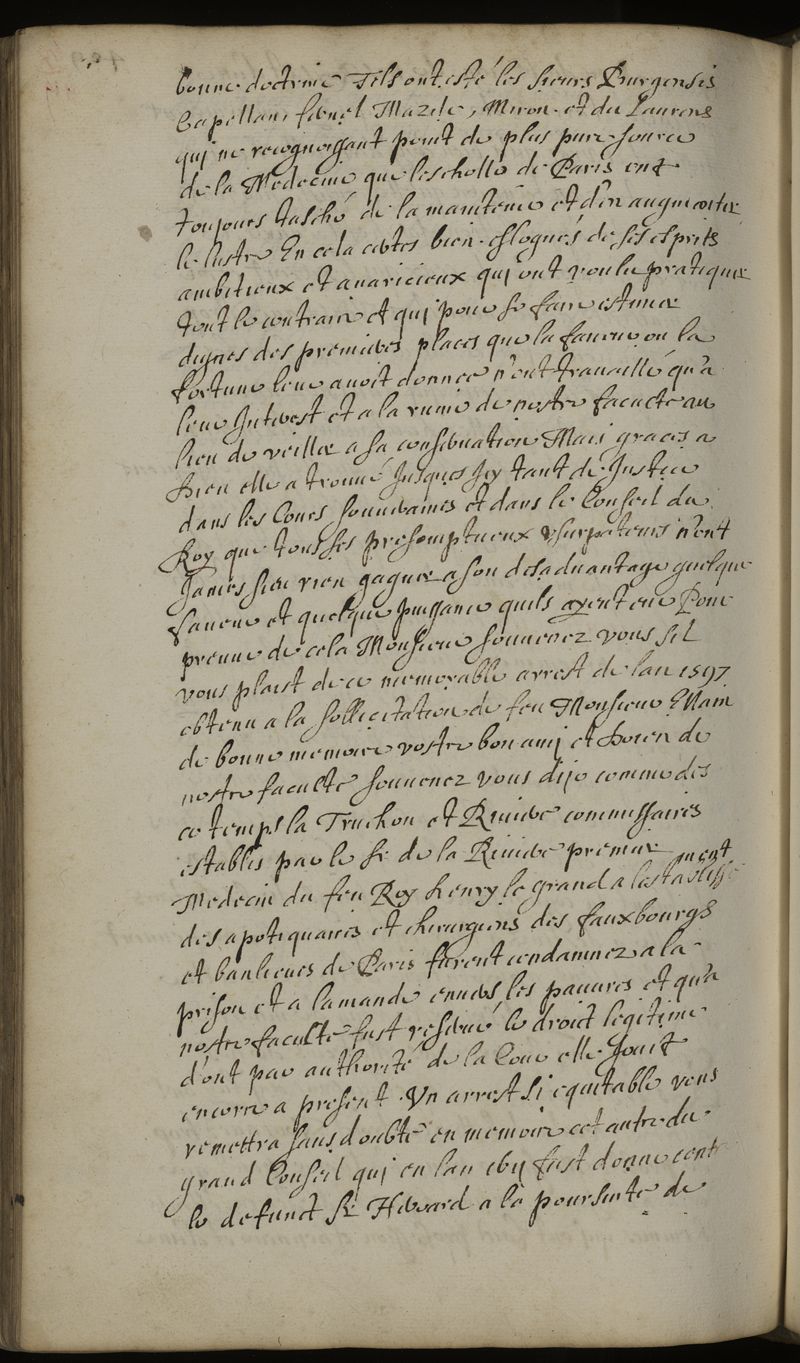 bonne doctrine Tels ont esté les sieurs Burgensis
Capellani fernel Mazile, Miron et du Laurens
qui ne recognoissant point de plus pure source
de la Medecine que lescholle de Paris ont
toujours tasché de la maintenir et d'en augmenter
le lustre En cela certes bien eslognés de ses esprits
ambitieux et avaricieux qui ont voulu pratiquer
tout le contraire et qui pour se faire estimer
dignes des premieres places que la faveur ou la
fortune leur avoit donnee n'ont travaillé qu'a
leur Interest et a la ruine de nostre faculté au
lieu de veiller a sa conservation Mais graces a
Dieu elle a trouvé Jusques Icy tant de Justice
dans les Cours souveraines et dans le Conseil du
Roy que tous ses presomptueux usurpateurs n'ont
Jamais sceu rien gagner a son desadvantage quelque
faveur et quelque puissance quils ayent eue Pour
preuve de cela Monsieur souvenez vous sil
vous plaist de ce memorable arrest de lan 1597
obtenu a la sollicitation de feu Monsieur Ellain
de bonne memoire vostre bon amy et Doien de
nostre faculté souvenez vous dije comme des
ce temps la Truchon et Riviere commissaires
establis par le Sr de la Riviere premier
Medecin du feu Roy henry le grand a lestablissement
des apotiquaires et chirurgiens des fauxbourgs
et banlieues de Paris furent condamnez a la
prison et a lamande envers les pauvres et qu'a
nostre faculté fust reservé le droict legitime
d'ont par authorité de la Cour elle Jouit
encorre a present. Un arrest si equitable vous
remettra sans doubte en memoire cet autre du
grand Conseil qui en lan fust donne contre
le defunct Sr Herouard a la poursuite de